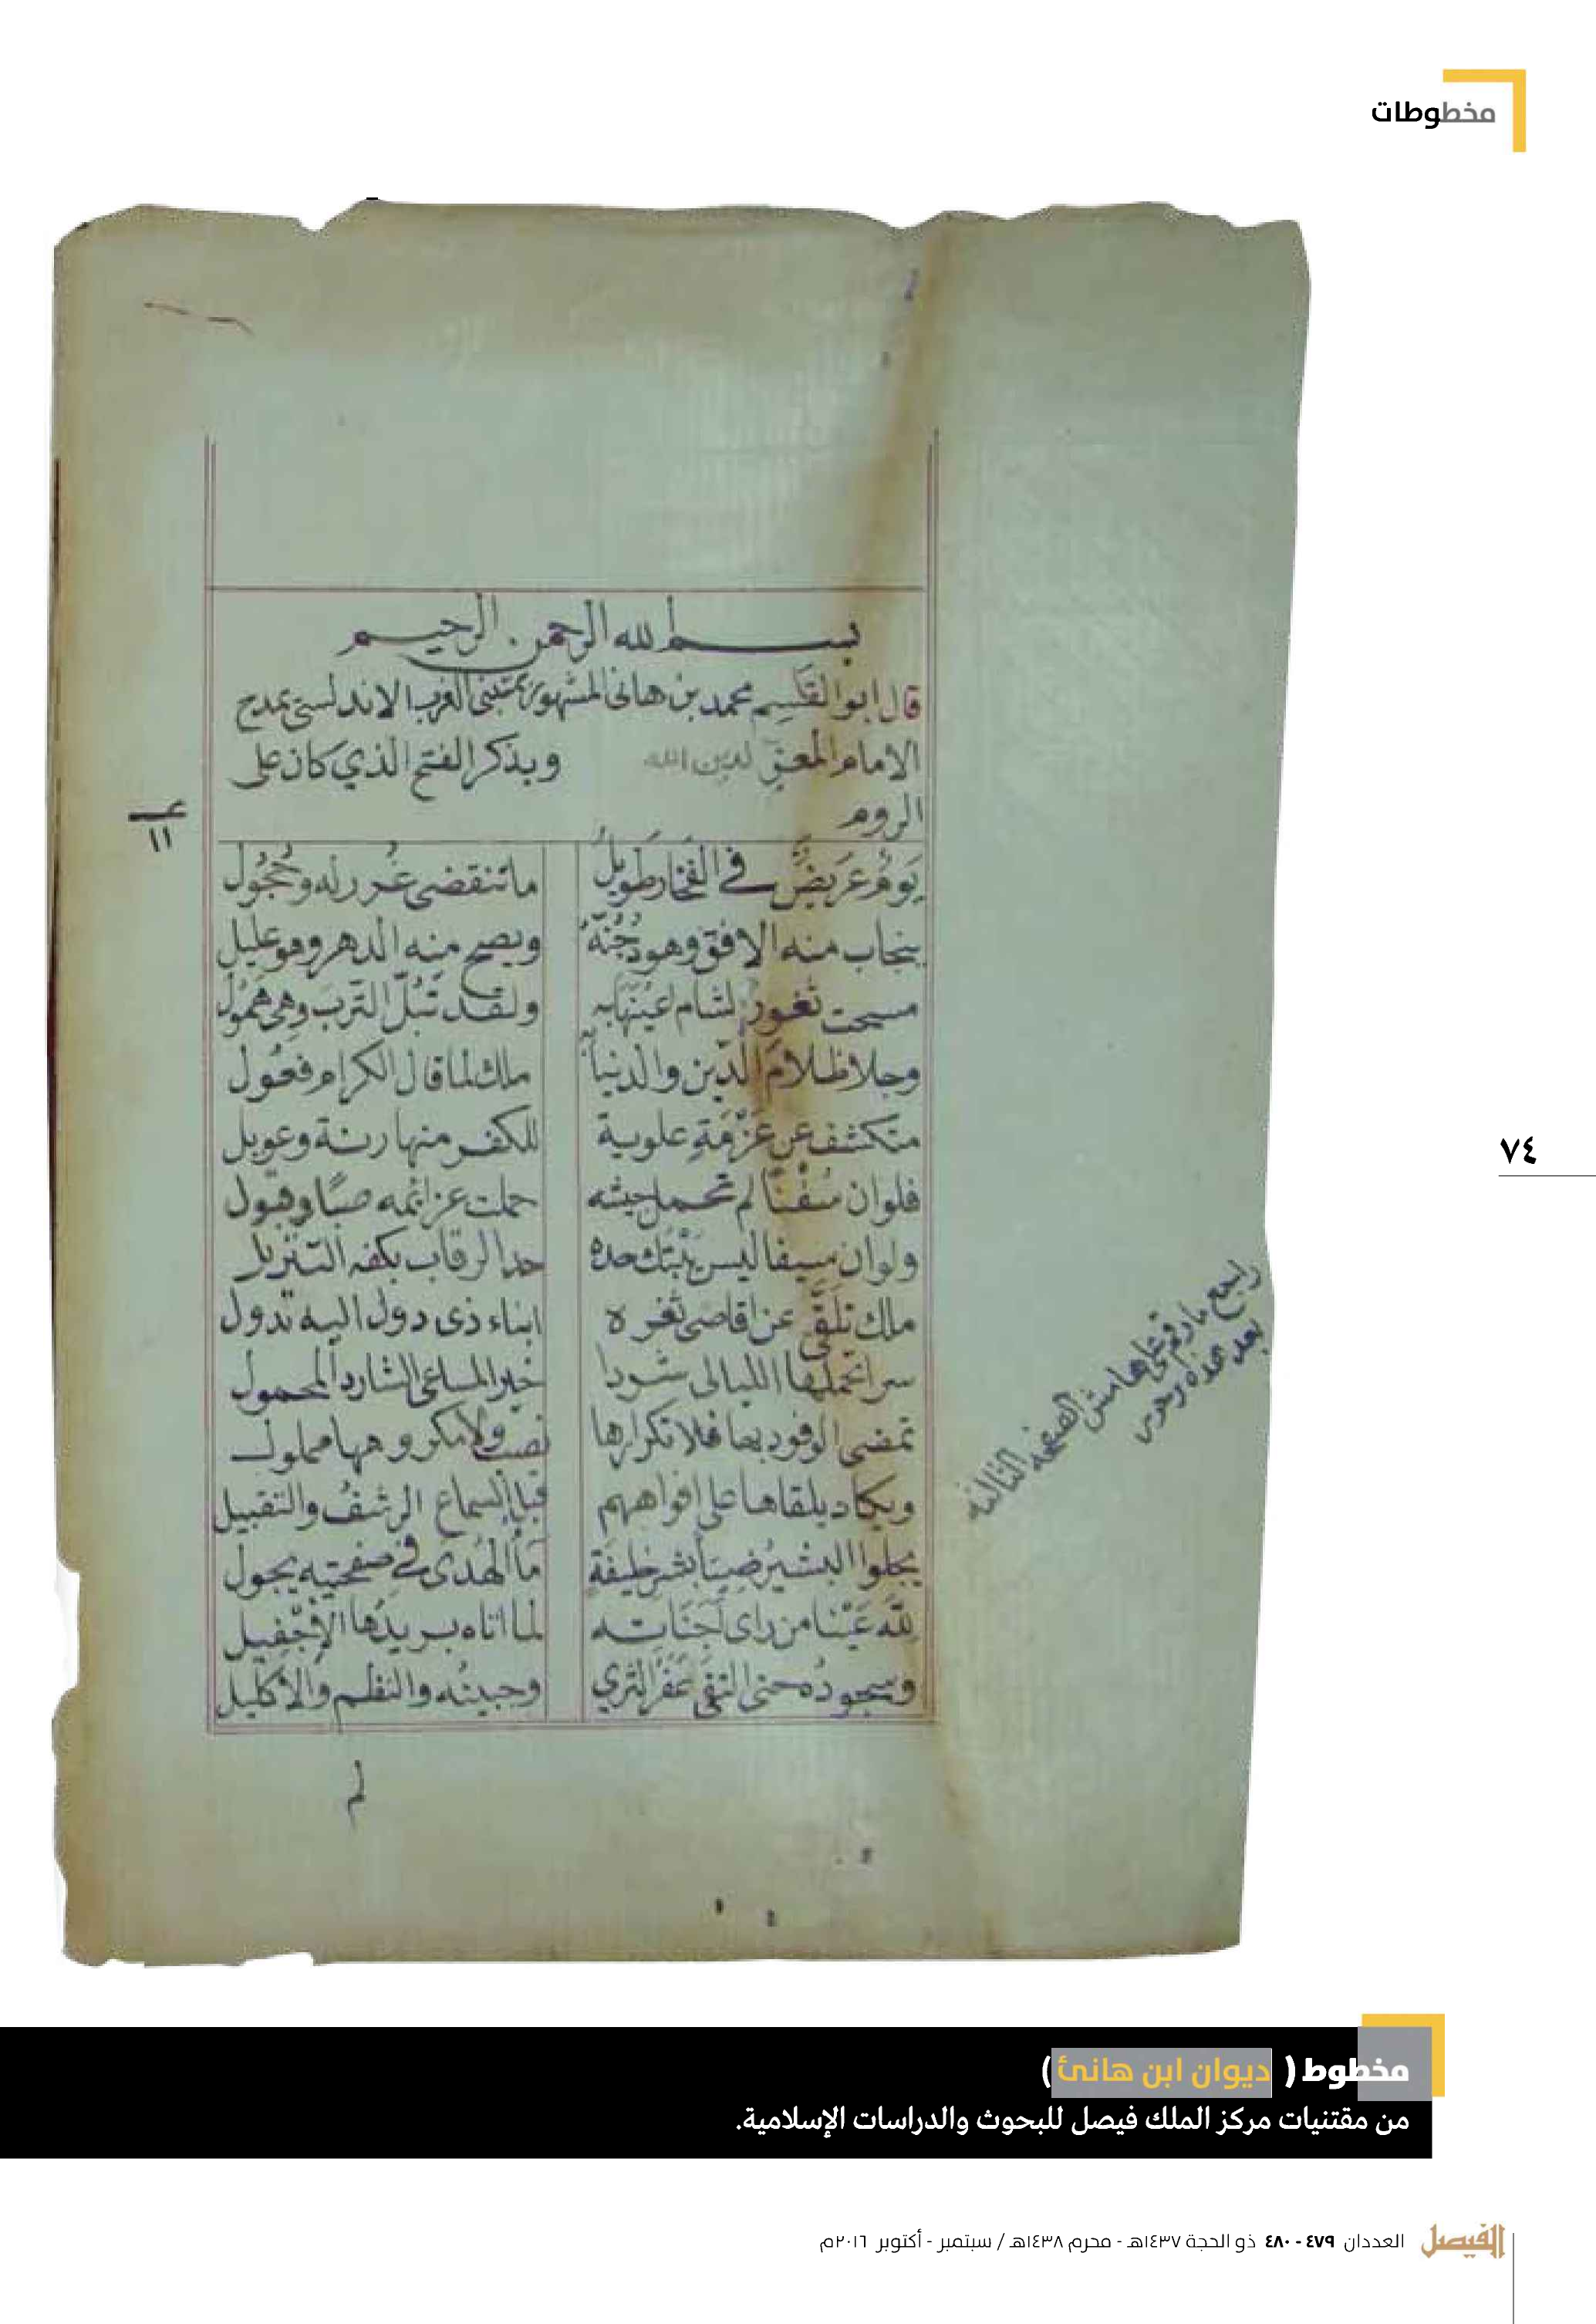 مخطوطات
بسم الله الرحمن الرحيم
قال ابوالقسم محمد بن هانى المشهور بمتنبى الغرب الاندلسى يمدح
الامام المعز لدين الله ويذكر الفتح الذي كان على
الروم
يوم عريض في الفخار طويل ما تنقضى غرر له وحجول
ينجاب منه الافق وهو دجنة ويصح منه الدهر وهو عليل
مسحت ثغور الشام اعينها به ولقد تبل الترب وهي همول
وجلا ظلام الدين والدنيا به ملك لما قال الكرام فعول
متكشف عن عزمة علوية للكفر منها رنة وعويل
فلو ان سفنا لم تحمل جيشه حملت عزائمه صبا وقبول
ولو ان سيفا ليس يبتك حده حد الرقاب بكفه التنزيل
ملك تلقى عن اقاصى ثغره انباء ذى دول اليه تدول
سرا تحملها الليالى شردا خير المساعى الشارد المحمول
تمضى الوفود بها فلا تكرارها نصب ولا مكروهها مملول
ويكاد يلقاها على افواههم قبل السماع الرشف والتقبيل
يجلوا البشير ضيا بشر خليفة ما الهدى في صفحتيه يجول
لله عينا من راى اخباته لما اتاه بريدها الاجفيل
وسجوده حتى التقى عفر الثرى وجبينه والنظم والاكليل
لم
١١
راجع ما رقم على هامش الصفحة الثالثة
بعد هذه
٧٤
مخطوط ( ديوان ابن هانئ )
من مقتنيات مركز الملك فيصل للبحوث والدراسات الإسلامية.
الفيصل العددان ٤٧٩ - ٤٨٠ ذو الحجة ١٤٣٧هـ - محرم ١٤٣٨هـ / سبتمبر - أكتوبر ٢٠١٦م